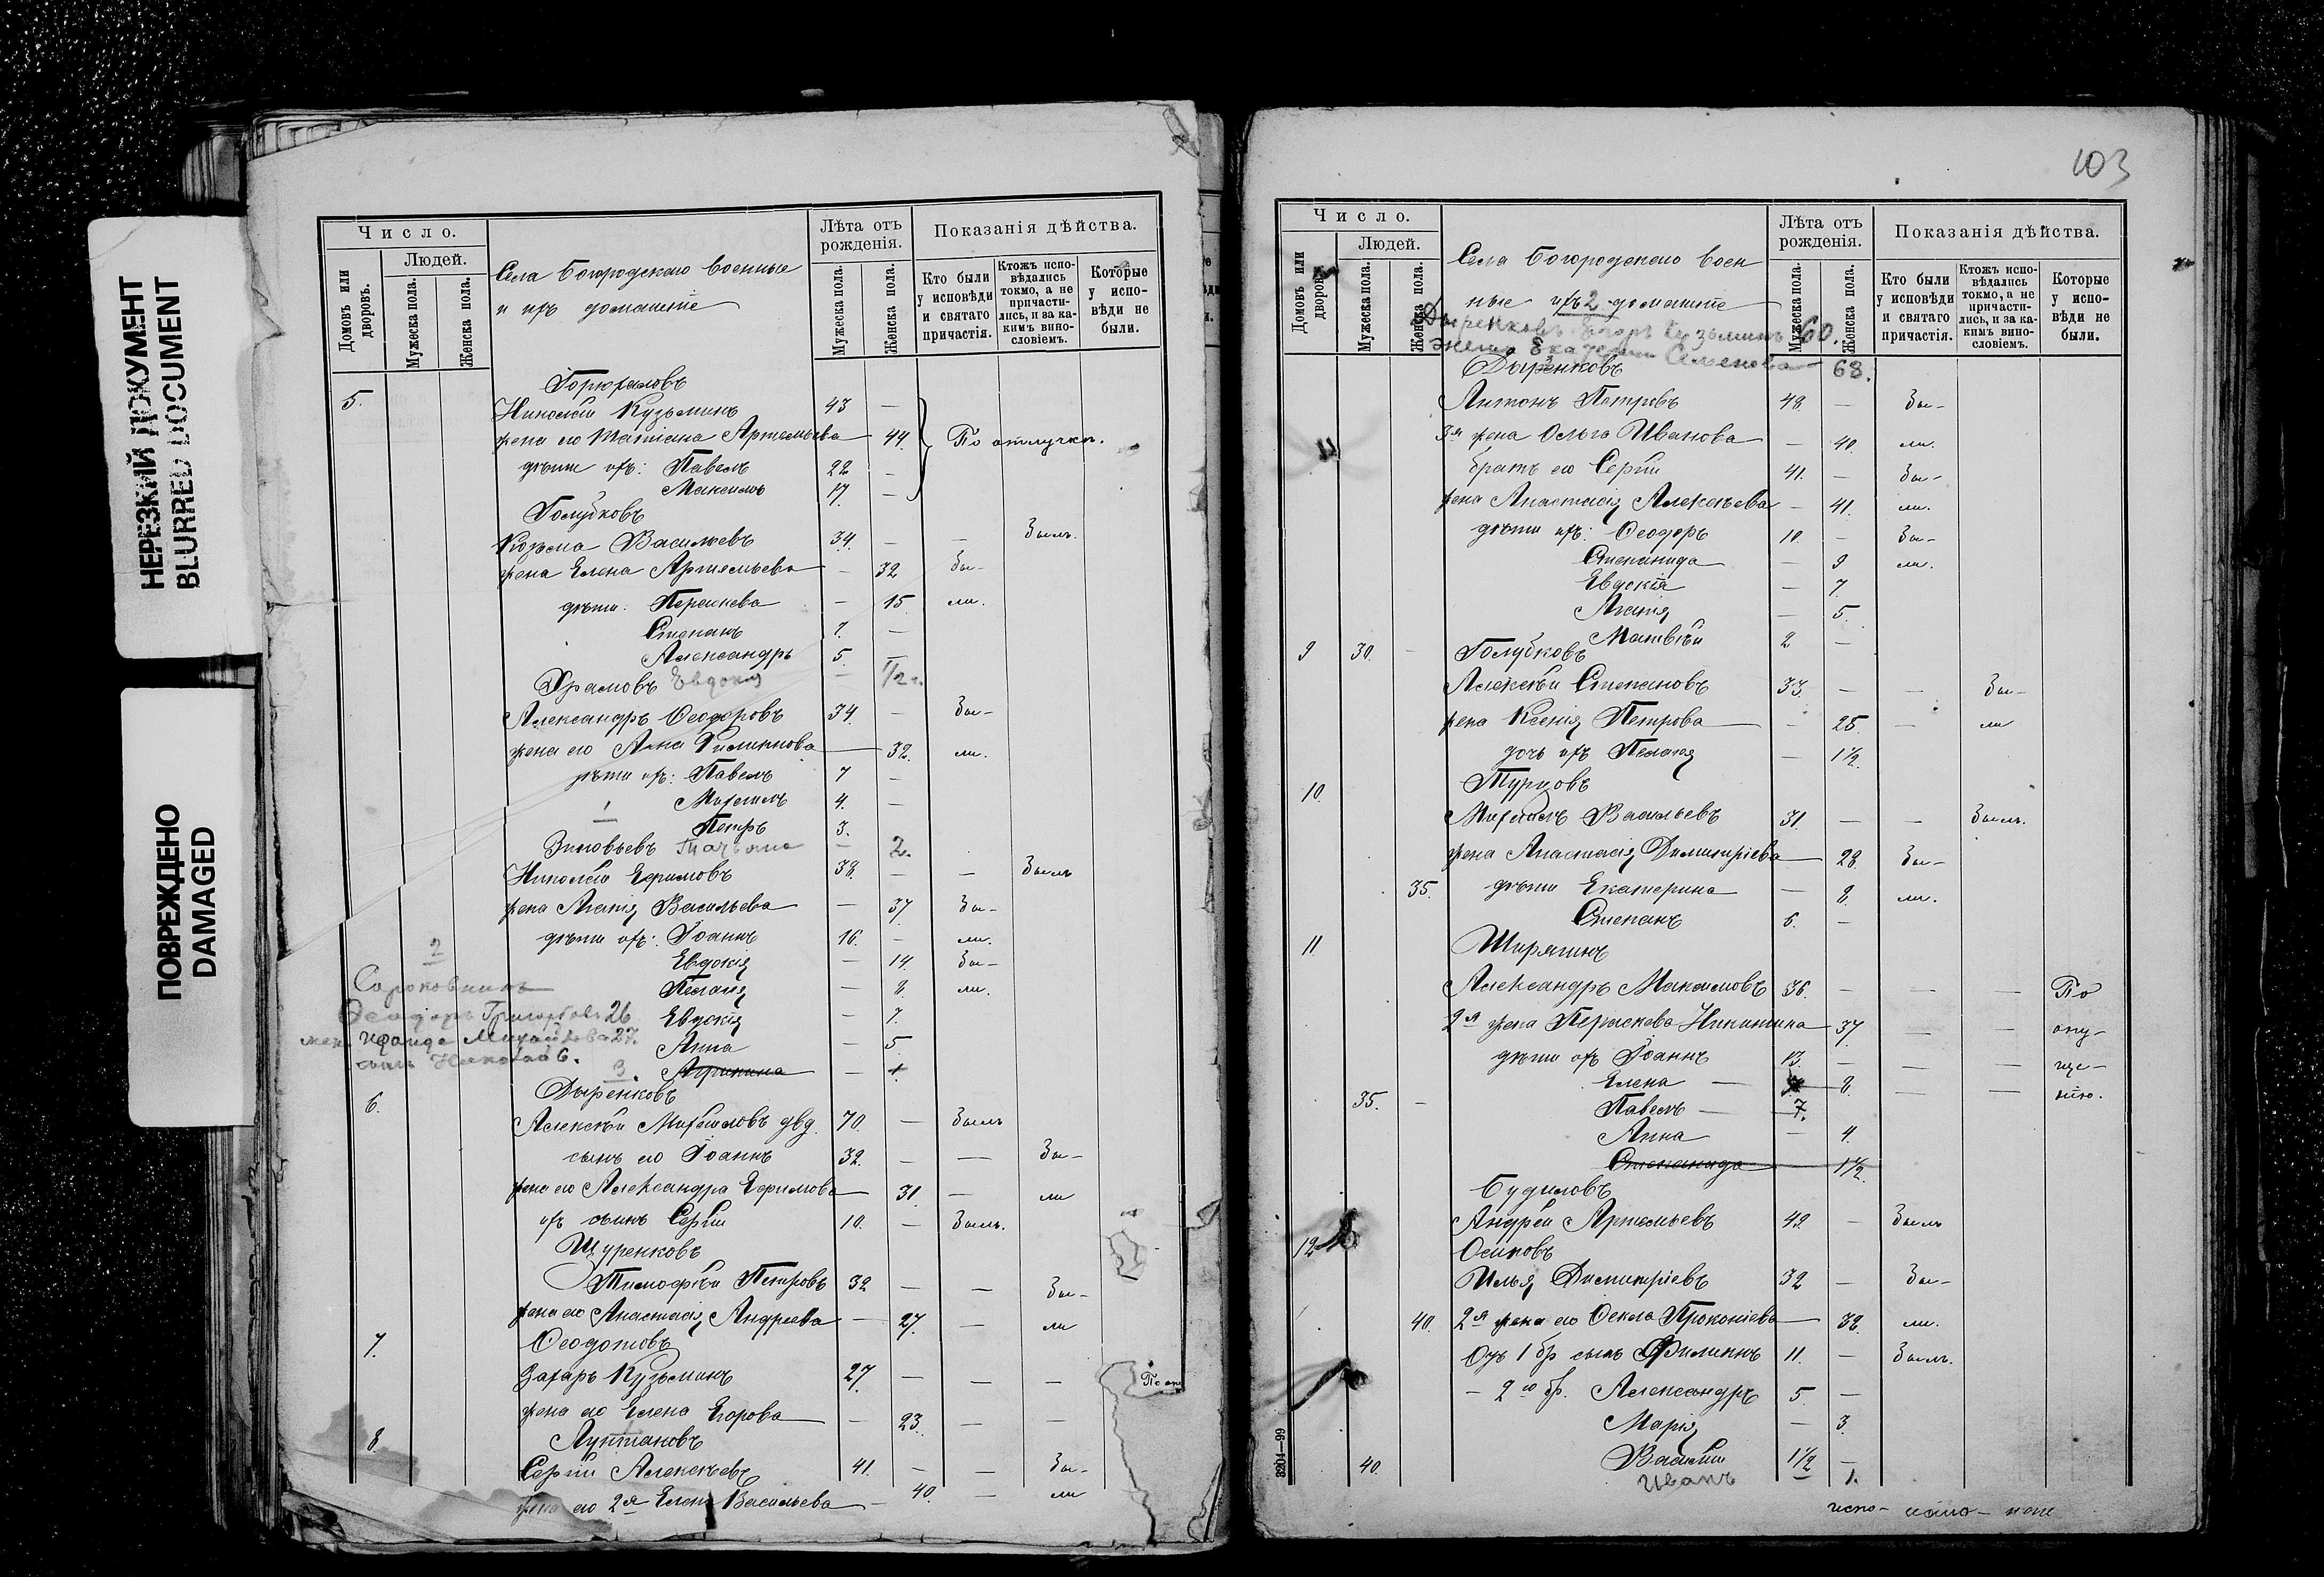 НЕРЕЗКИЙ ДОКУМЕНТ
BLURRED DOCUMENT
ПОВРЕЖДЕНО
DAMAGED
Число.
Людей.
Домовъ или дворовъ.
Мужеска пола.
Женска пола.
Села Богородскаго военные
и ихъ домашніе
Лѣта отъ рожденія.
Мужеска пола.
Женска пола.
Показанія дѣйства.
Кто были у исповѣди и святаго причастія.
Ктожъ исповѣдались токмо, а не причастились, и за какимъ винословіемъ.
Которые у исповѣди не были.
5.
Николай Кузьминъ 43 —
жена его Татіана Артемьева 44 По отлучкѣ.
дѣти ихъ: Павелъ 22 —
Максимъ 17. —
Голубковъ
Козьма Васильевъ 34. — — Былъ.
жена Елена Артемьева — 32 бы-
дѣти: Параскева — 15. ли.
Стефанъ 7. —
Александръ 5. —
Храмовъ Евдокія — 1/2 г.
Александръ Ѳеодоровъ 34. — Бы-
жена его Анна Филиппова 32. ли.
дѣти ихъ: Павелъ 7 —
Михаилъ 4. —
Петръ 3.
Зиновьевъ Татьяна — 2.
Николай Ефимовъ 38. — — Былъ
жена Агапія Васильева — 37 Бы-
дѣти ихъ: Іоаннъ 16. — ли.
Евдокія — 14. Бы-
Пелагія — 8. ли.
2
Сороковникъ
Ѳеодоръ Григорьевъ 26
Михайлова 27.
сынъ Николай 6.
Евдокія — 7.
Анна — 5.
3. Агрипина — 1.
Дыренковъ
6.
Алексѣй Михаиловъ вд. 70. — Былъ
сынъ его Іоаннъ 32. — — Бы-
жена его Александра Ефимова 31 — ли
ихъ сынъ Сергій 10. — Былъ.
Щуренковъ
Тимоѳей Петровъ 32 — — Бы-
жена его Анастасія Андреева — 27. — ли
7. Ѳеодотовъ
Захаръ Кузьминъ 27. — — —
жена его Елена Егорова — 23. — —
8. Луптановъ
Сергій Алексѣевъ 41. — — Бы-
жена его 2я Елена Васильева — 40. — ли
103
Число.
Людей.
Домовъ или дворовъ.
Мужеска пола.
Женска пола.
Села Богородскаго воен
ные ихъ 2 домашніе
Лѣта отъ рожденія.
Мужеска пола.
Женска пола.
Показанія дѣйства.
Кто были у исповѣди и святаго причастія.
Ктожъ исповѣдались токмо, а не причастились, и за какимъ винословіемъ.
Которые у исповѣди не были.
Дыренковъ Егоръ Кузьминъ 60.
жена Екатерина Семенова 68.
Дыренковъ
Антонъ Петровъ 48. — Бы-
3я жена Ольга Иванова — 40. ли.
братъ его Сергій 41. — Бы-
жена Анастасія Алексѣева — 41. ли.
дѣти ихъ: Ѳеодоръ 10. — Бы-
Степанида — 9 ли.
Евдокія — 7.
Агапія — 5.
Матвѣй 2 —
9 30. — Голубковъ
Алексѣй Степановъ 33. — — Бы-
жена Ксенія Петрова — 25. — ли
дочь ихъ Пелагія — 1 1/2.
10. Турцовъ
Михаилъ Васильевъ 31. — — Былъ.
жена Анастасія Димитріева 28. Бы-
35. дѣти Екатерина — 8. ли.
Стефанъ 6. —
11. Ширяминъ
Александръ Максимовъ 36. — — — По
2я жена Параскева Никитина 37 — — опу-
дѣти ихъ Іоаннъ 13. — — — ще-
Елена — 8. — — нію.
35. — Павелъ — 7.
Анна — 4.
Степанида — 1 1/2.
Будиловъ
Андрей Артемьевъ 42. — Былъ
12. Осиповъ
Илья Димитріевъ 32 — Бы-
40. 2я жена его Ѳекла Прокопіева 32. ли.
Отъ 1 бр сынъ Филиппъ 11. — Былъ.
— 2го бр. Александръ 5. —
Марія — 3.
40. Василій 1 1/2 —
Иванъ 1.
3204—99